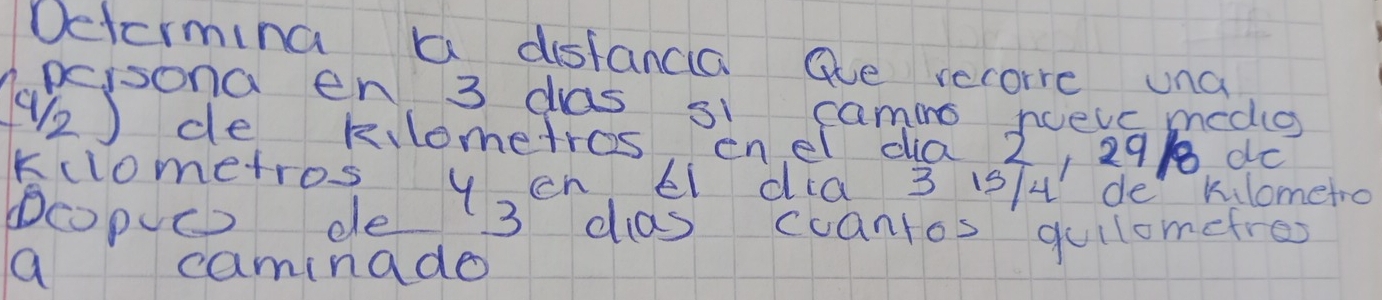 Determina la distancia Que recorre una
persona en 3 dias si camino nueve medio
(9/2) de kilometros en el dia 2, 29/8 de
kilometros y en El dia 3 15/4 de kilometro
Despues de 3 dias cuantos quilometros
a caminado